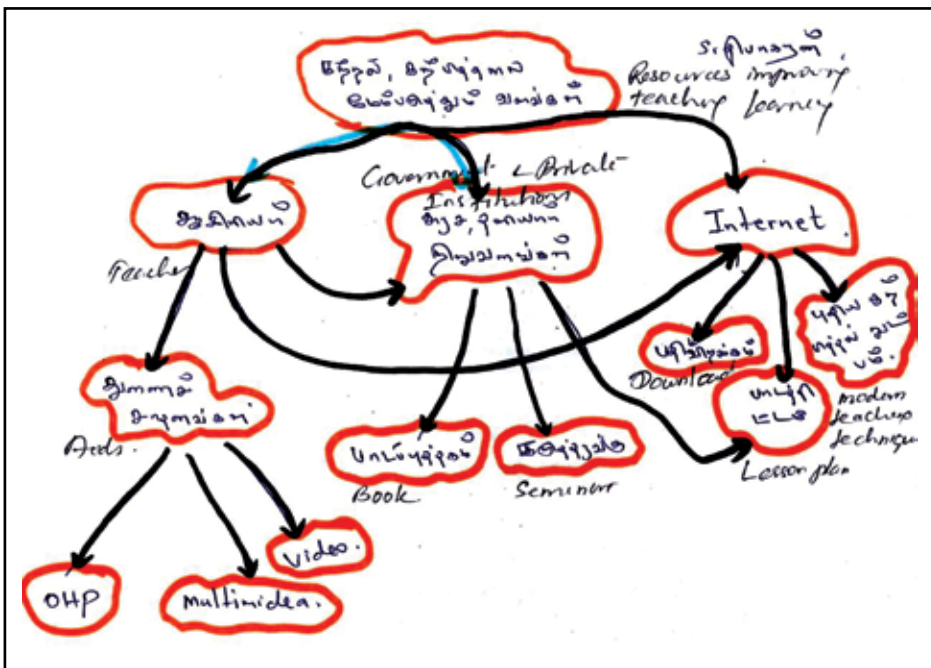 கற்றல், கற்பித்தலை
மேம்படுத்தும் வளங்கள்
Resources improving
teaching learney
Government & Private
Institutions
ஆசிரியர்
Teacher
அரச, தனியார
நிறுவனங்கள்
Internet
துணைச்
சாதனங்கள்
Aids.
பதிவிறக்கம்
Download
புதிய கற்
பித்தல் நுட்
பம்.
modern
teaching
technique
பாடத்தி
ட்டம்
Lesson plan
பாடப்புத்தகம்
Book
கருத்தரங்கு
Seminar
Video.
OHP
Multimidea.